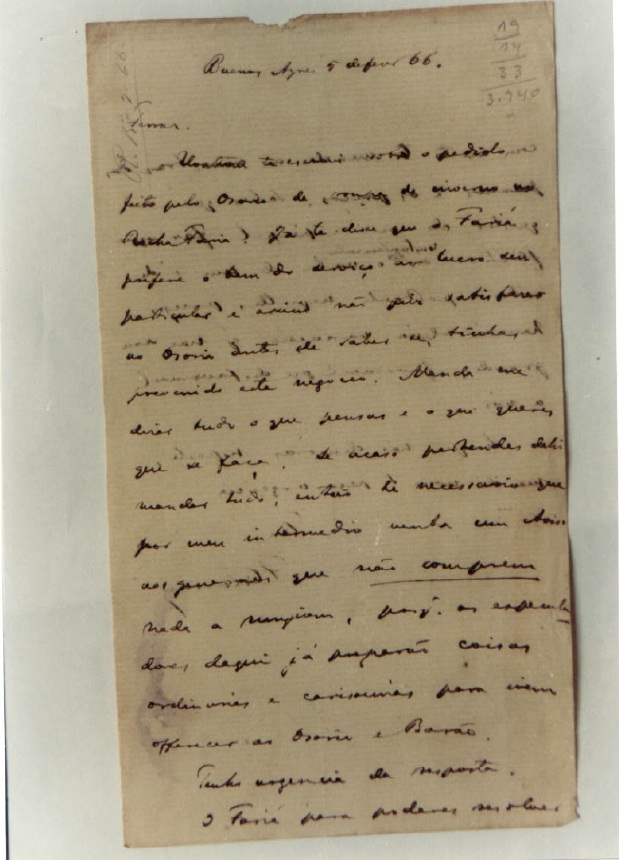 19
14
33
3.940
Buenos Ayres 5 de fevr 66.
Ferraz.
te escrevi sobre o pedido
feito pelo Osorio de de inverno ao
Rocha Faria? Já te disse que o Faria
prefere o bem do serviço ao lucro seu
particular e assim não quiz satisfazer
ao Osorio antes de saber se tinhas
prevenido este negocio. Manda me
dizer tudo o que pensas e o que queres
que se faça. Se acaso pertendes dahi
mandar tudo, então é necessario que
por meu intermedio venha um Aviso
aos generaes que não comprem
nada a ninguem, porq. os especula
dores daqui já preparão coisas
ordinarias e carissimas para irem
offerecer ao Osorio e Barão.
Tenho urgencia da resposta.
O Faria para poderes resolver